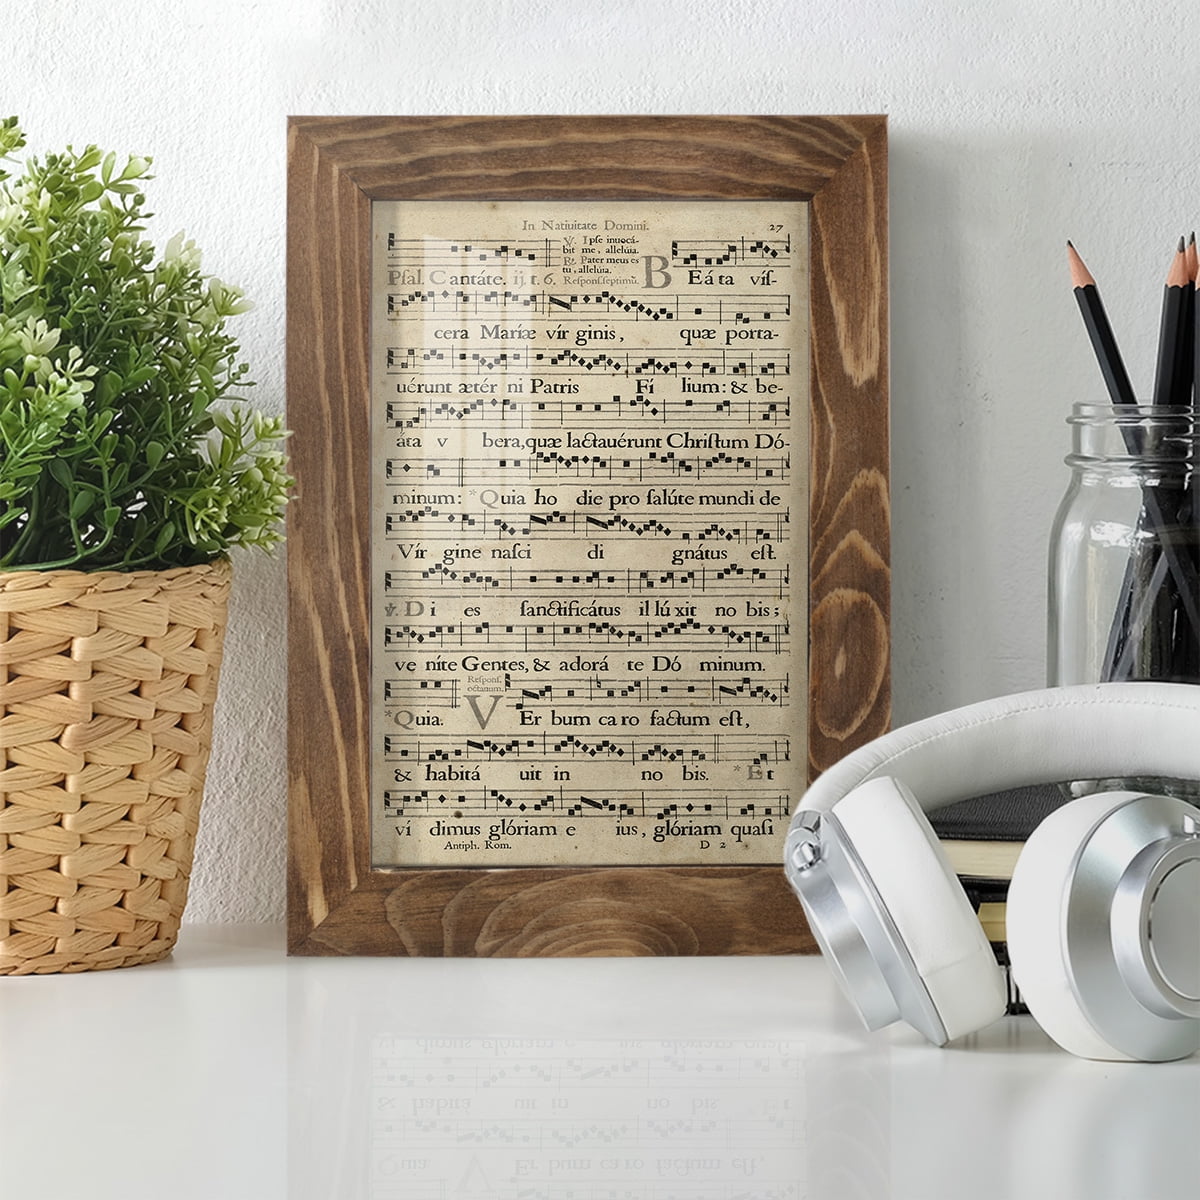 In Natiuitate Domini. 27
℣. Ipse inuocá-
bit me, allelúia.
℟. Pater meus es
tu, allelúia.
Pſal. Cantáte. ij. t. 6. Reſponſ. ſeptimũ. BEáta víſ-
cera Maríæ vír ginis, quæ porta-
uérunt ætér ni Patris Fí lium: & be-
áta v bera, quæ lactauérunt Chriſtum Dó-
minum: *Quia ho die pro ſalúte mundi de
Vír gine naſci di gnátus eſt.
℣. Di es ſanctificátus il lú xit no bis;
ve níte Gentes, & adorá te Dó minum.
Reſponſ.
octauum.
*Quia. VEr bum ca ro factum eſt,
& habitá uit in no bis. *Et
ví dimus glóriam e ius, glóriam quaſi
Antiph. Rom. D 2